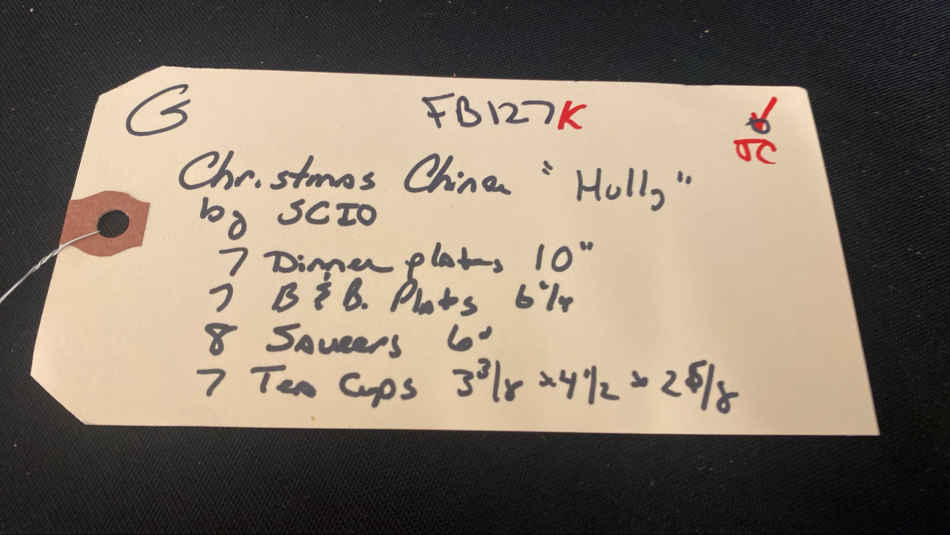 G FB127K
JC
Christmas China "Holly"
by SCIO
7 Dinner plates 10"
7 B & B. Plats 6 1/4
8 Saucers 6"
7 Tea Cups 3 3/8 x 4 1/2 x 2 5/8